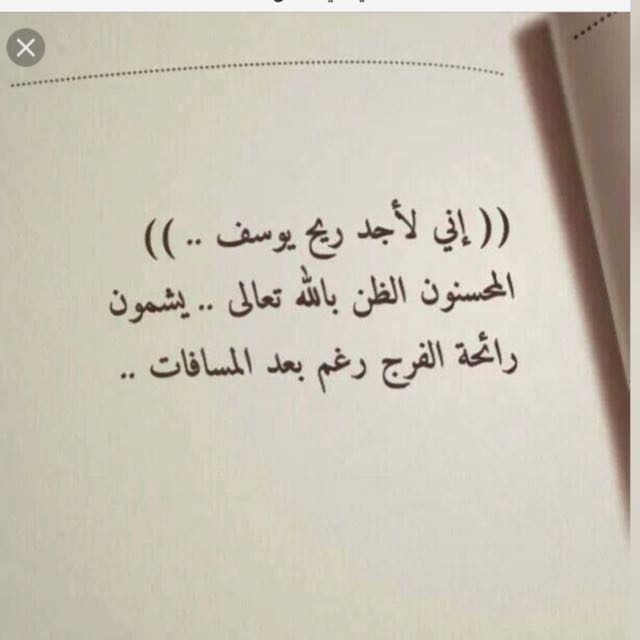 (( إني لأجد ريح يوسف .. ))
المحسنون الظن بالله تعالى .. يشمون
رائحة الفرج رغم بعد المسافات ..